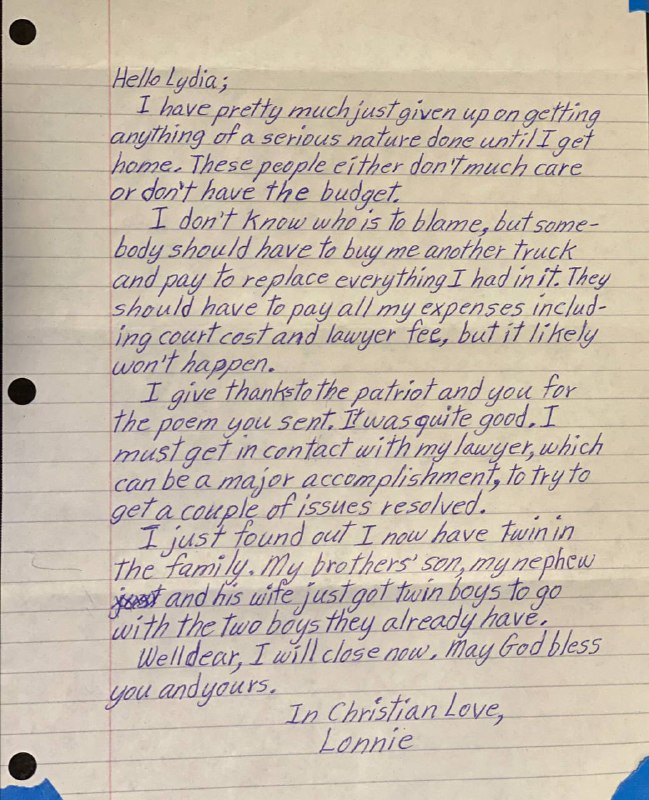 Hello Lydia;
I have pretty much just given up on getting
anything of a serious nature done until I get
home. These people either don't much care
or don't have the budget.
I don't know who is to blame, but some-
body should have to buy me another truck
and pay to replace everything I had in it. They
should have to pay all my expenses includ-
ing court cost and lawyer fee, but it likely
won't happen.
I give thanks to the patriot and you for
the poem you sent. It was quite good. I
must get in contact with my lawyer, which
can be a major accomplishment, to try to
get a couple of issues resolved.
I just found out I now have twin in
the family. My brothers' son, my nephew
and his wife just got twin boys to go
with the two boys they already have.
Well dear, I will close now. May God bless
you and yours.
In Christian Love,
Lonnie